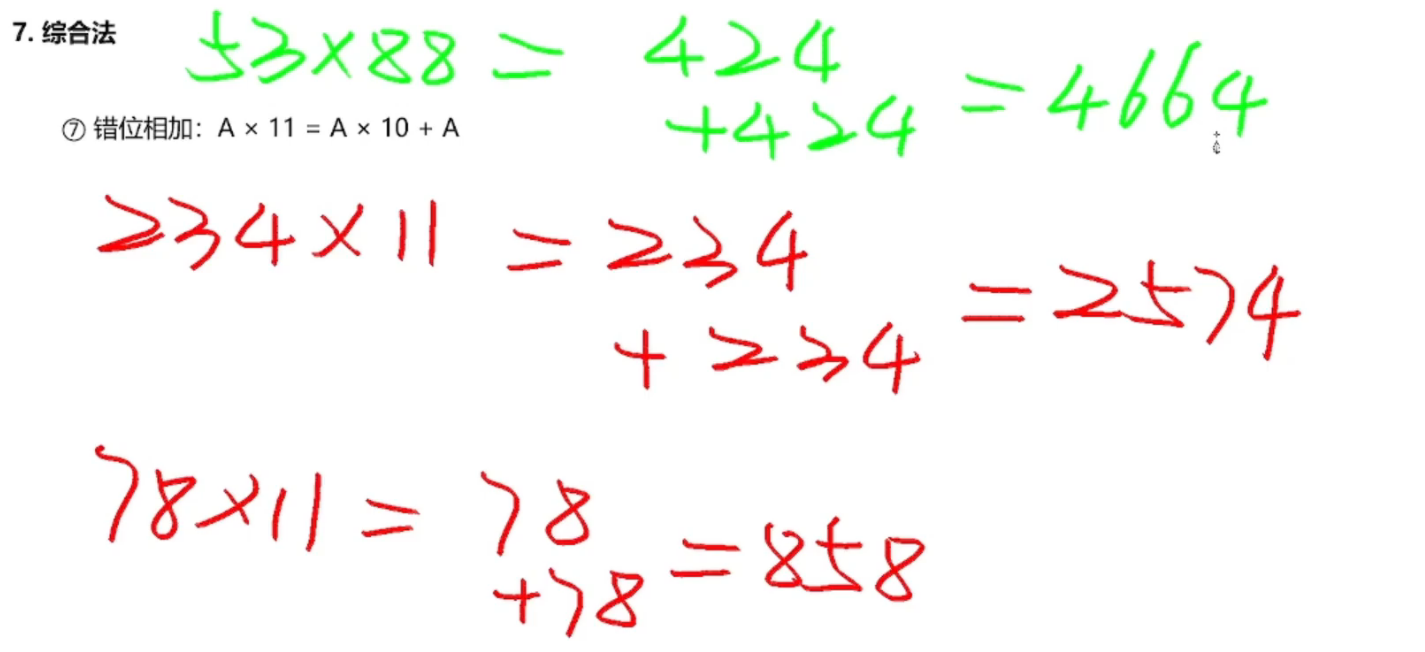 7. 综合法
53×88 = 424
+424 = 4664
⑦ 错位相加：A × 11 = A × 10 + A
234×11 = 234
+ 234 = 2574
78×11 = 78
+78 = 858